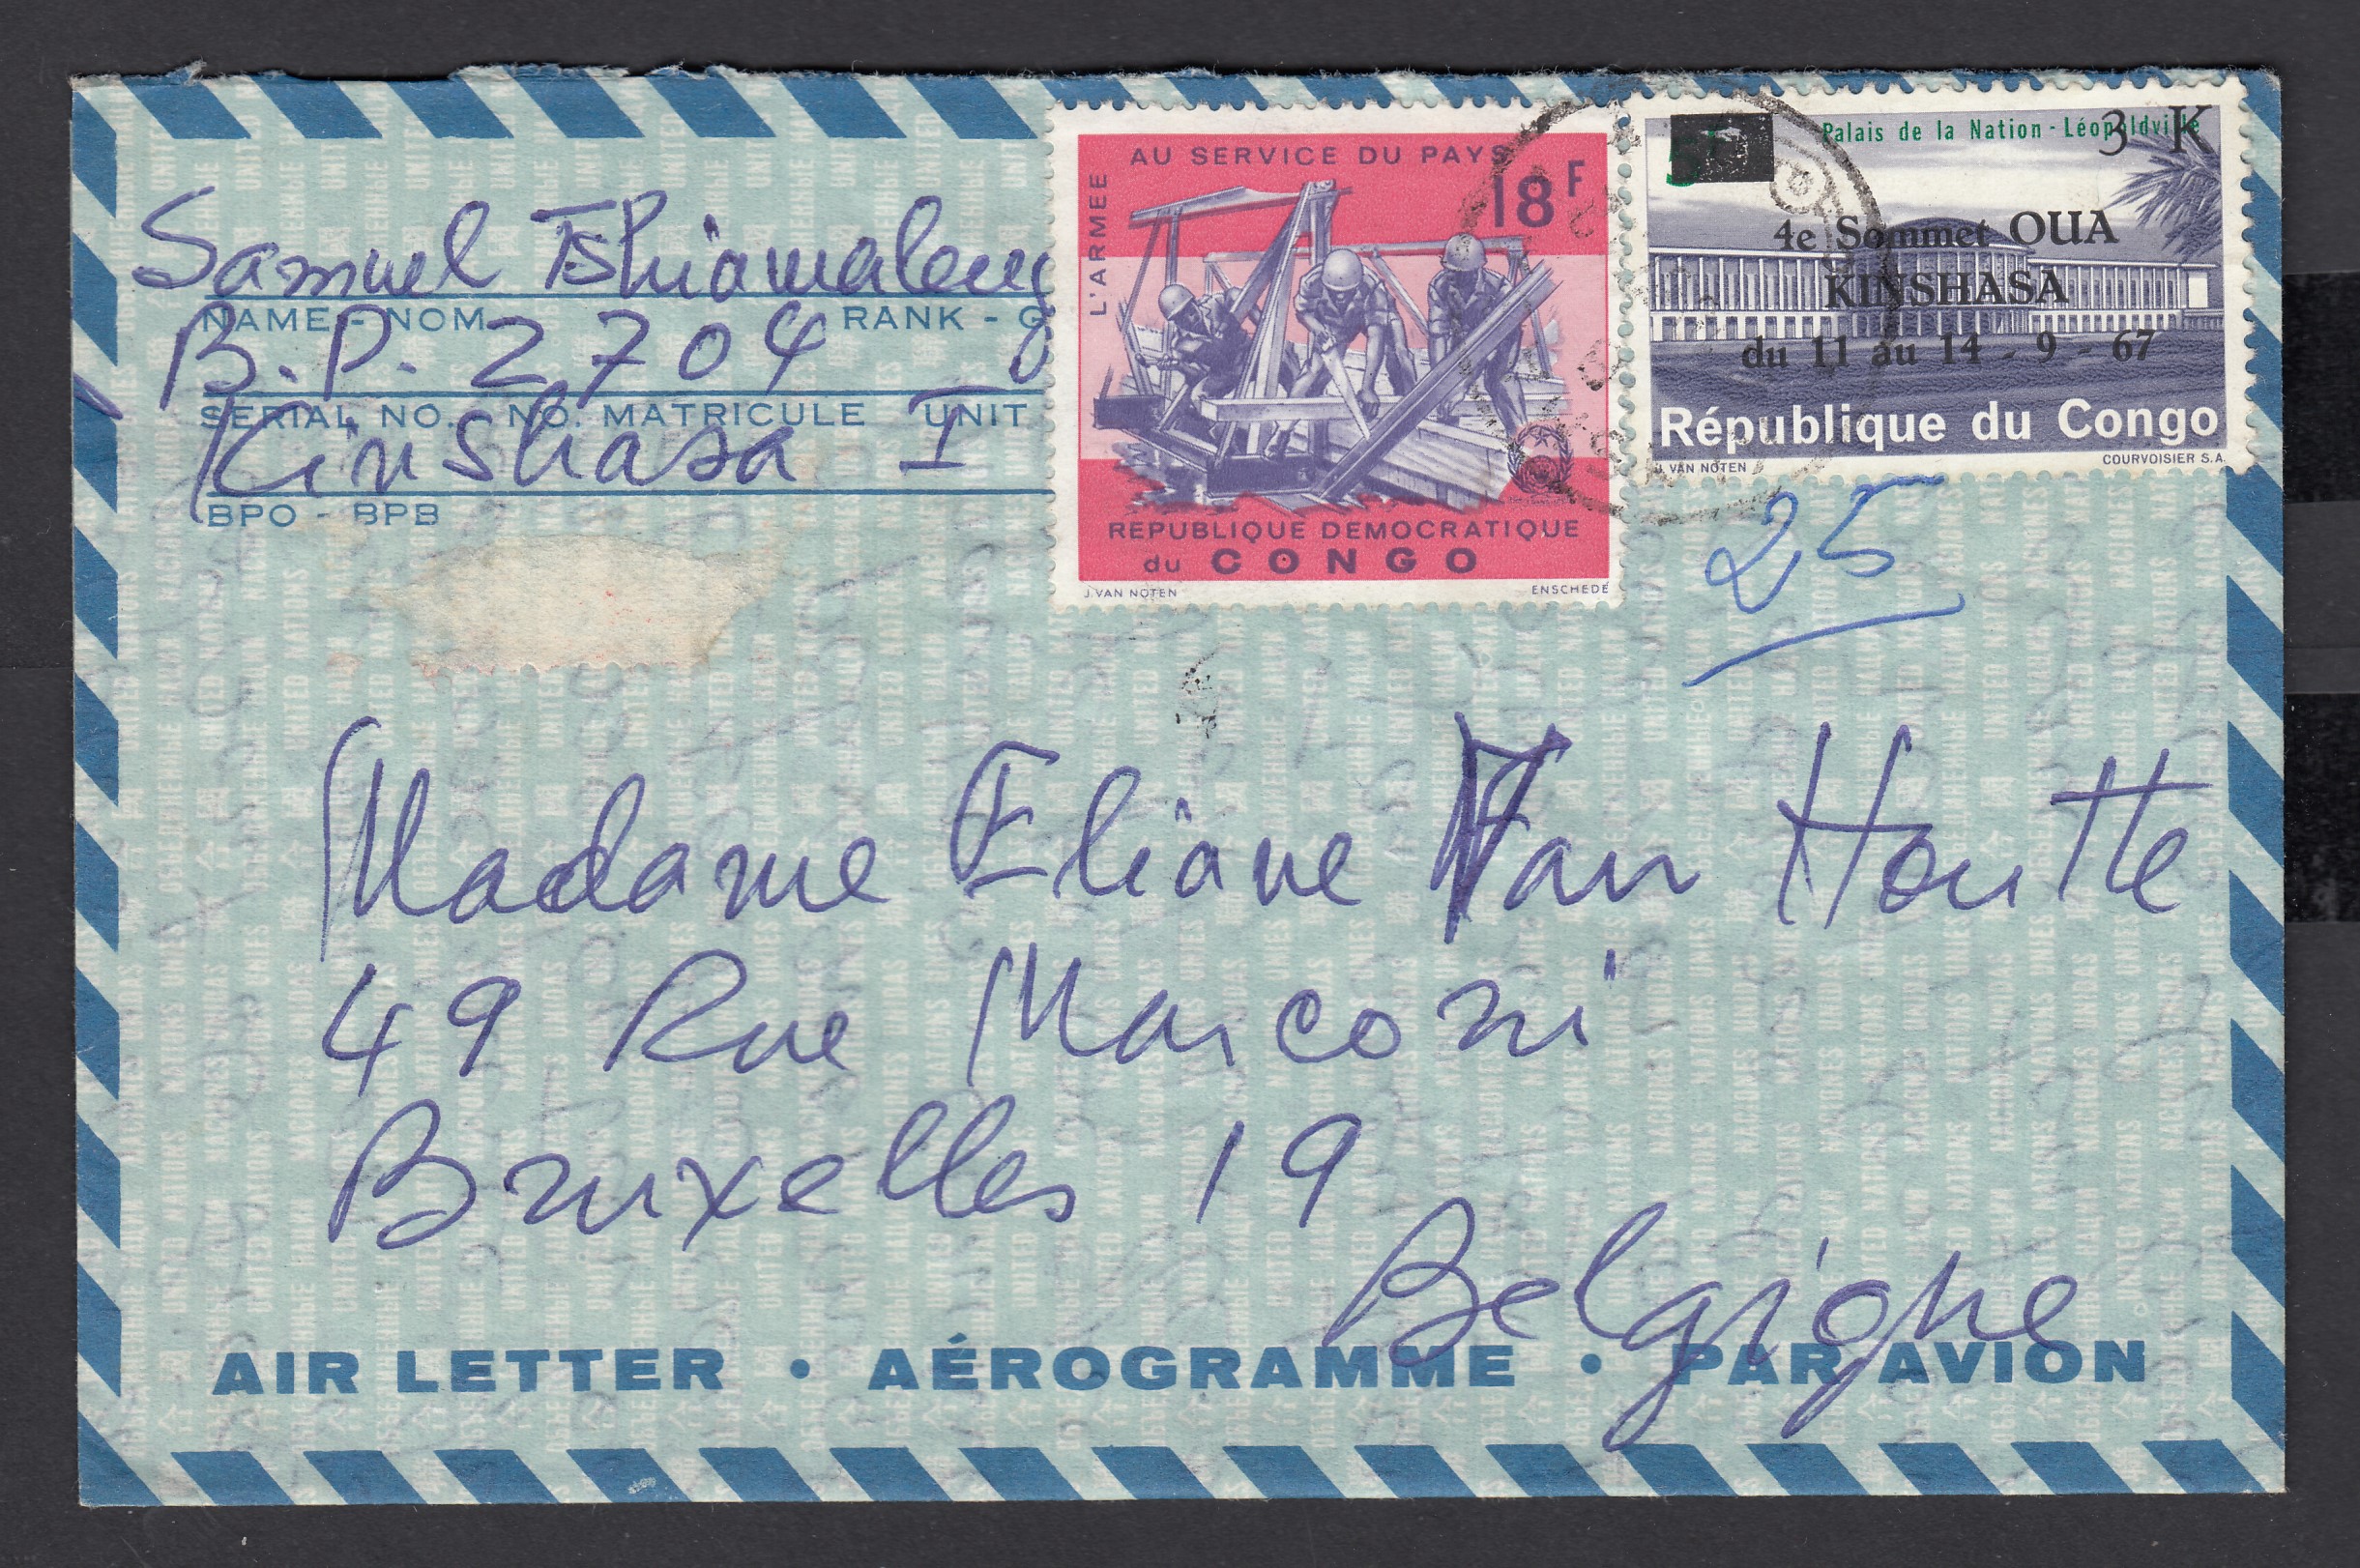 Samuel Tshiamaleng
NAME - NOM RANK - G
B.P. 2704
SERIAL NO. - NO. MATRICULE UNIT
Kinshasa I
BPO - BPB
AU SERVICE DU PAYS
L'ARMEE
18F
REPUBLIQUE DEMOCRATIQUE
du CONGO
J. VAN NOTEN ENSCHEDÉ
Palais de la Nation - Léopoldville
3 K
4e Sommet OUA
KINSHASA
du 11 au 14 - 9 - 67
République du Congo
J. VAN NOTEN COURVOISIER S.A.
25
Madame Eliane Van Houtte
49 Rue Marconi
Bruxelles 19
Belgique
AIR LETTER • AÉROGRAMME • PAR AVION